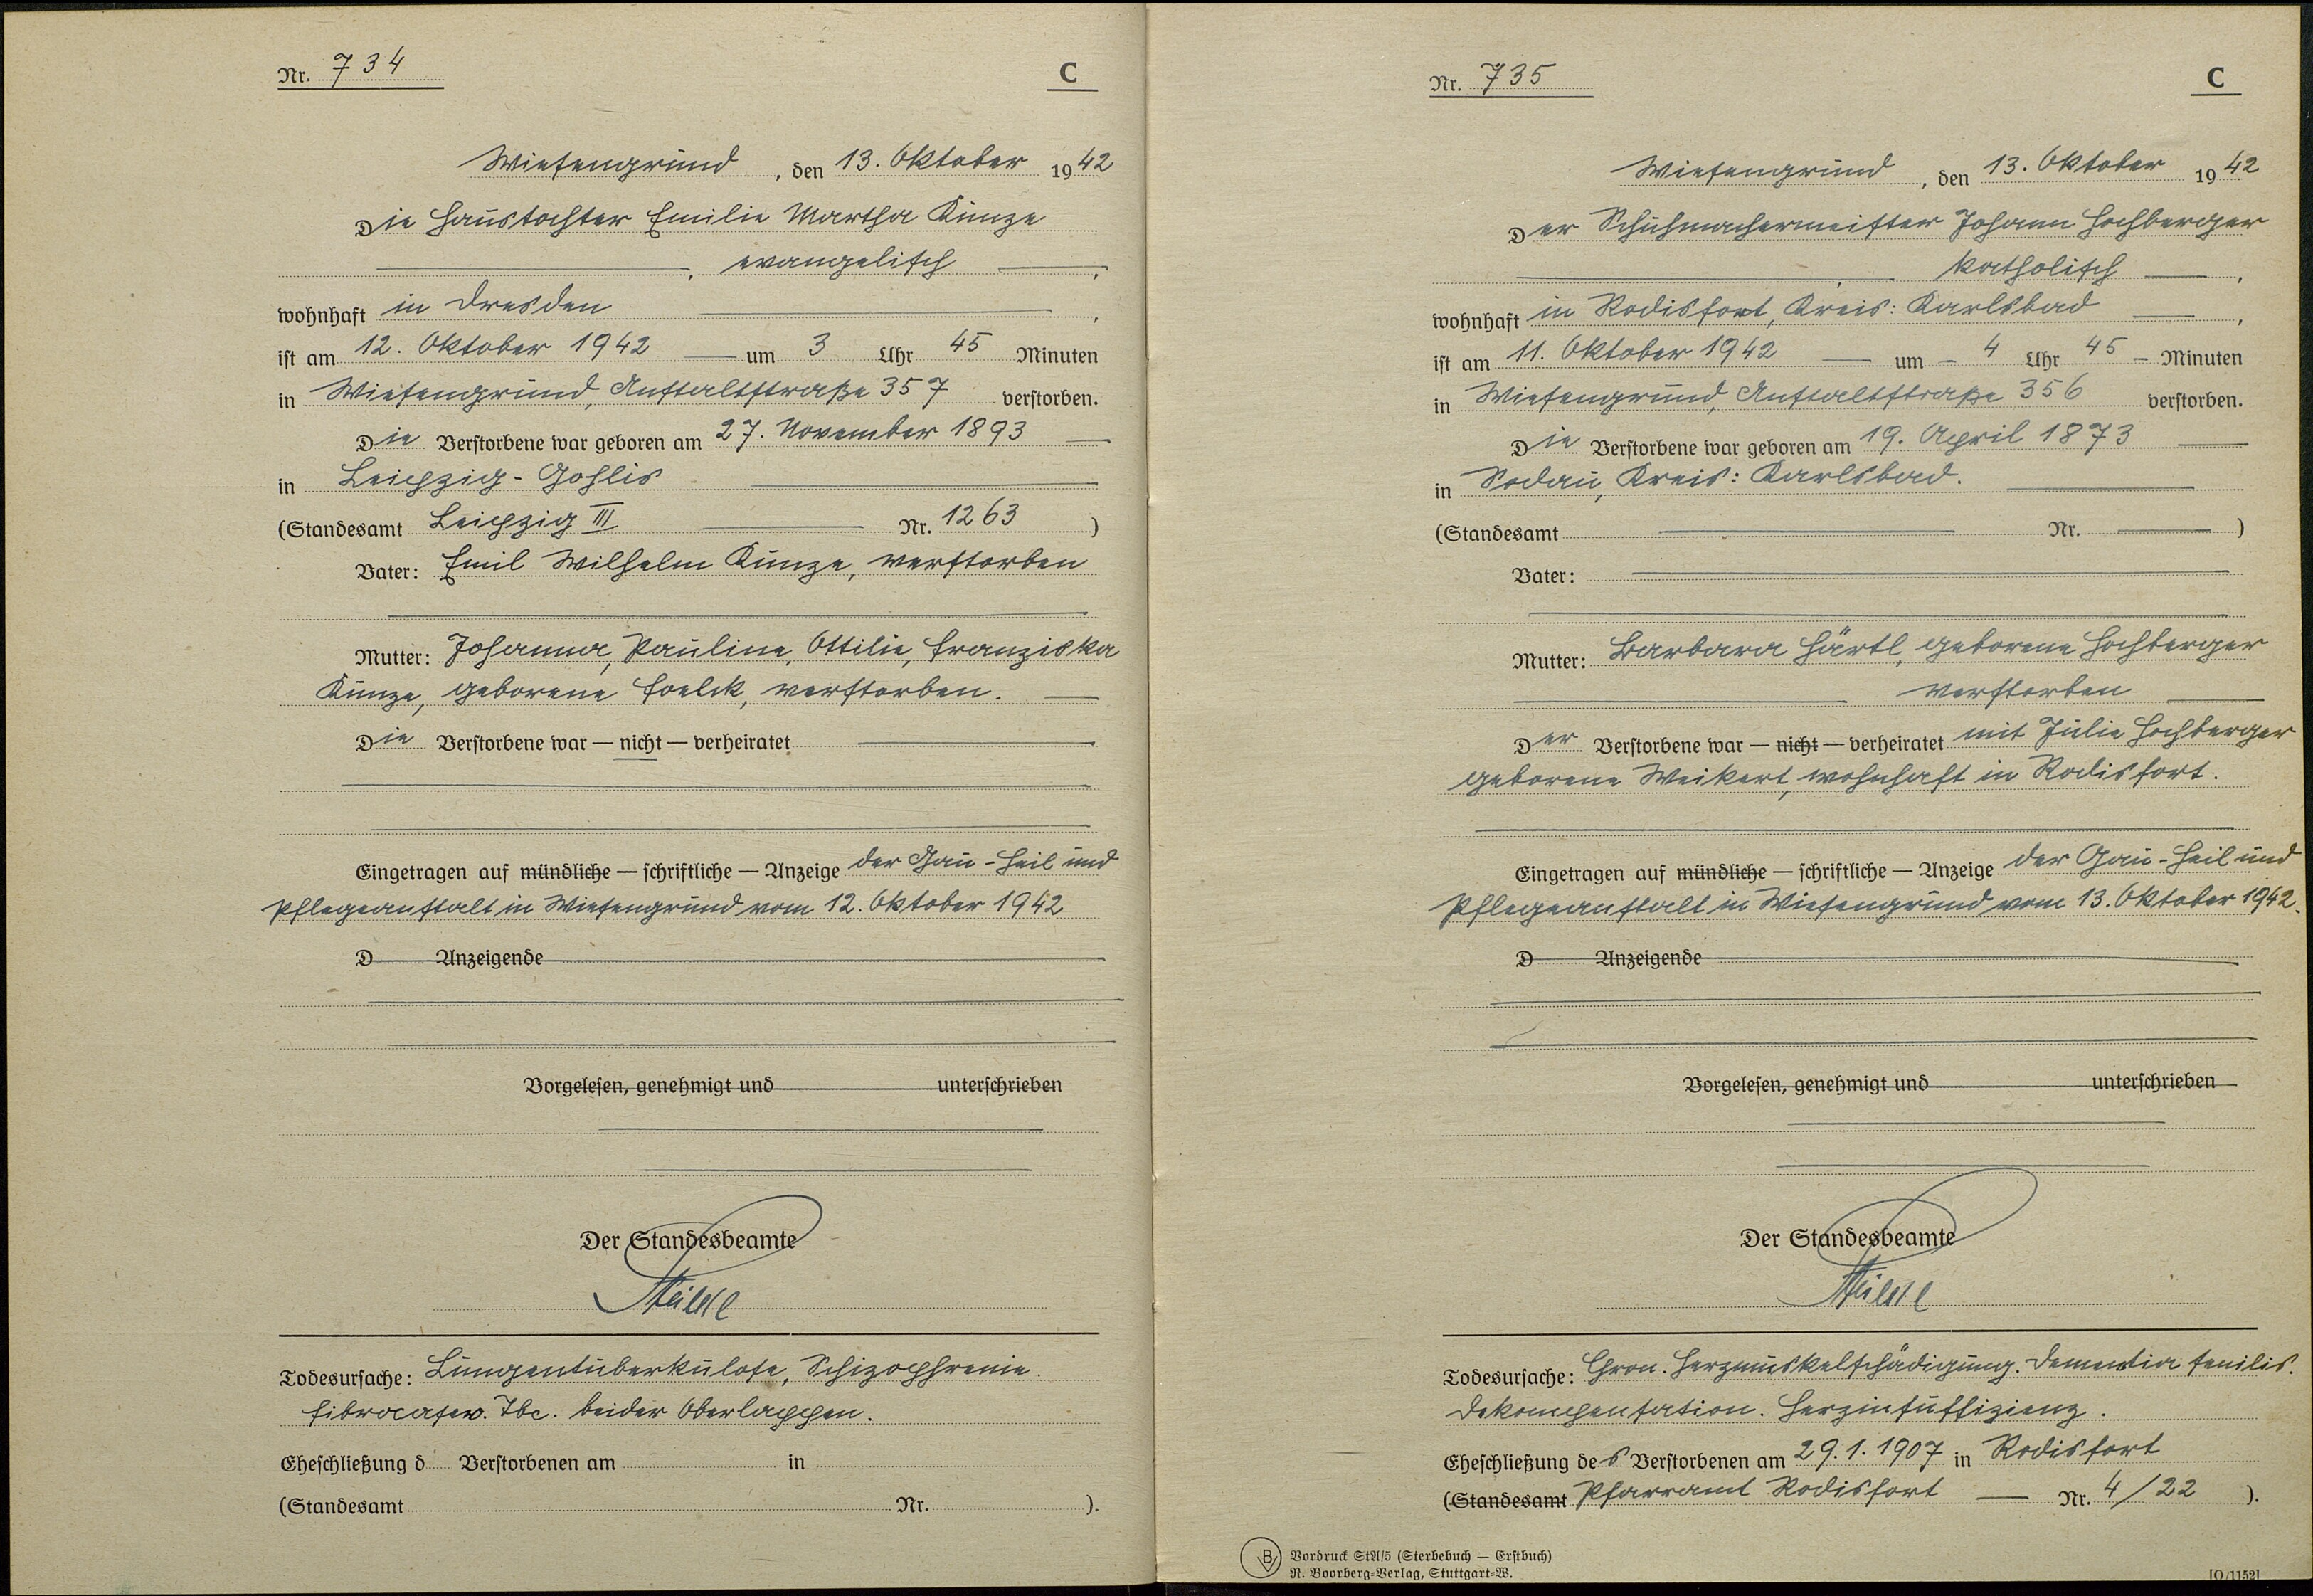 Nr. 734
C
Wiesengrund, den 13. Oktober 1942
Die Haustochter Emilie Martha Kunze
, evangelisch ,
wohnhaft in Dresden ,
ist am 12. Oktober 1942 um 3 Uhr 45 Minuten
in Wiesengrund, Anstaltstraße 357 verstorben.
Die Verstorbene war geboren am 27. November 1893
in Leipzig-Gohlis
(Standesamt Leipzig III Nr. 1263 )
Vater: Emil Wilhelm Kunze, verstorben
Mutter: Johanna, Pauline, Ottilie, Franziska
Kunze, geborene Foelck, verstorben.
Die Verstorbene war — nicht — verheiratet
Eingetragen auf mündliche — schriftliche — Anzeige der Gau-Heil und
Pflegeanstalt in Wiesengrund vom 12. Oktober 1942
D Anzeigende
Vorgelesen, genehmigt und unterschrieben
Der Standesbeamte
Todesursache: Lungentuberkulose, Schizophrenie.
Tbc. beider Oberlappen.
Eheschließung d Verstorbenen am in
(Standesamt Nr. ).
Nr. 735
C
Wiesengrund, den 13. Oktober 1942
Der Schuhmachermeister Johann Hochberger
, katholisch ,
wohnhaft in Rodisfort, Kreis: Karlsbad ,
ist am 11. Oktober 1942 um – 4 Uhr 45 – Minuten
in Wiesengrund, Anstaltstraße 356 verstorben.
Die Verstorbene war geboren am 19. April 1873
in Sodau, Kreis: Karlsbad.
(Standesamt Nr. )
Vater:
Mutter: Barbara Härtl, geborene Hochberger
verstorben
Der Verstorbene war — nicht — verheiratet mit Julie Hochberger
geborene Weikert, wohnhaft in Rodisfort.
Eingetragen auf mündliche — schriftliche — Anzeige der Gau-Heil und
Pflegeanstalt in Wiesengrund vom 13. Oktober 1942.
D Anzeigende
Vorgelesen, genehmigt und unterschrieben
Der Standesbeamte
Todesursache: Chron. Herzmuskelschädigung. Dementia senilis.
Dekompensation. Herzinsuffizienz.
Eheschließung des Verstorbenen am 29.1.1907 in Rodisfort
(Standesamt Pfarramt Rodisfort Nr. 4/22 ).
B Vordruck StA/5 (Sterbebuch — Erstbuch)
R. Boorberg-Verlag, Stuttgart-W.
[O/1152]